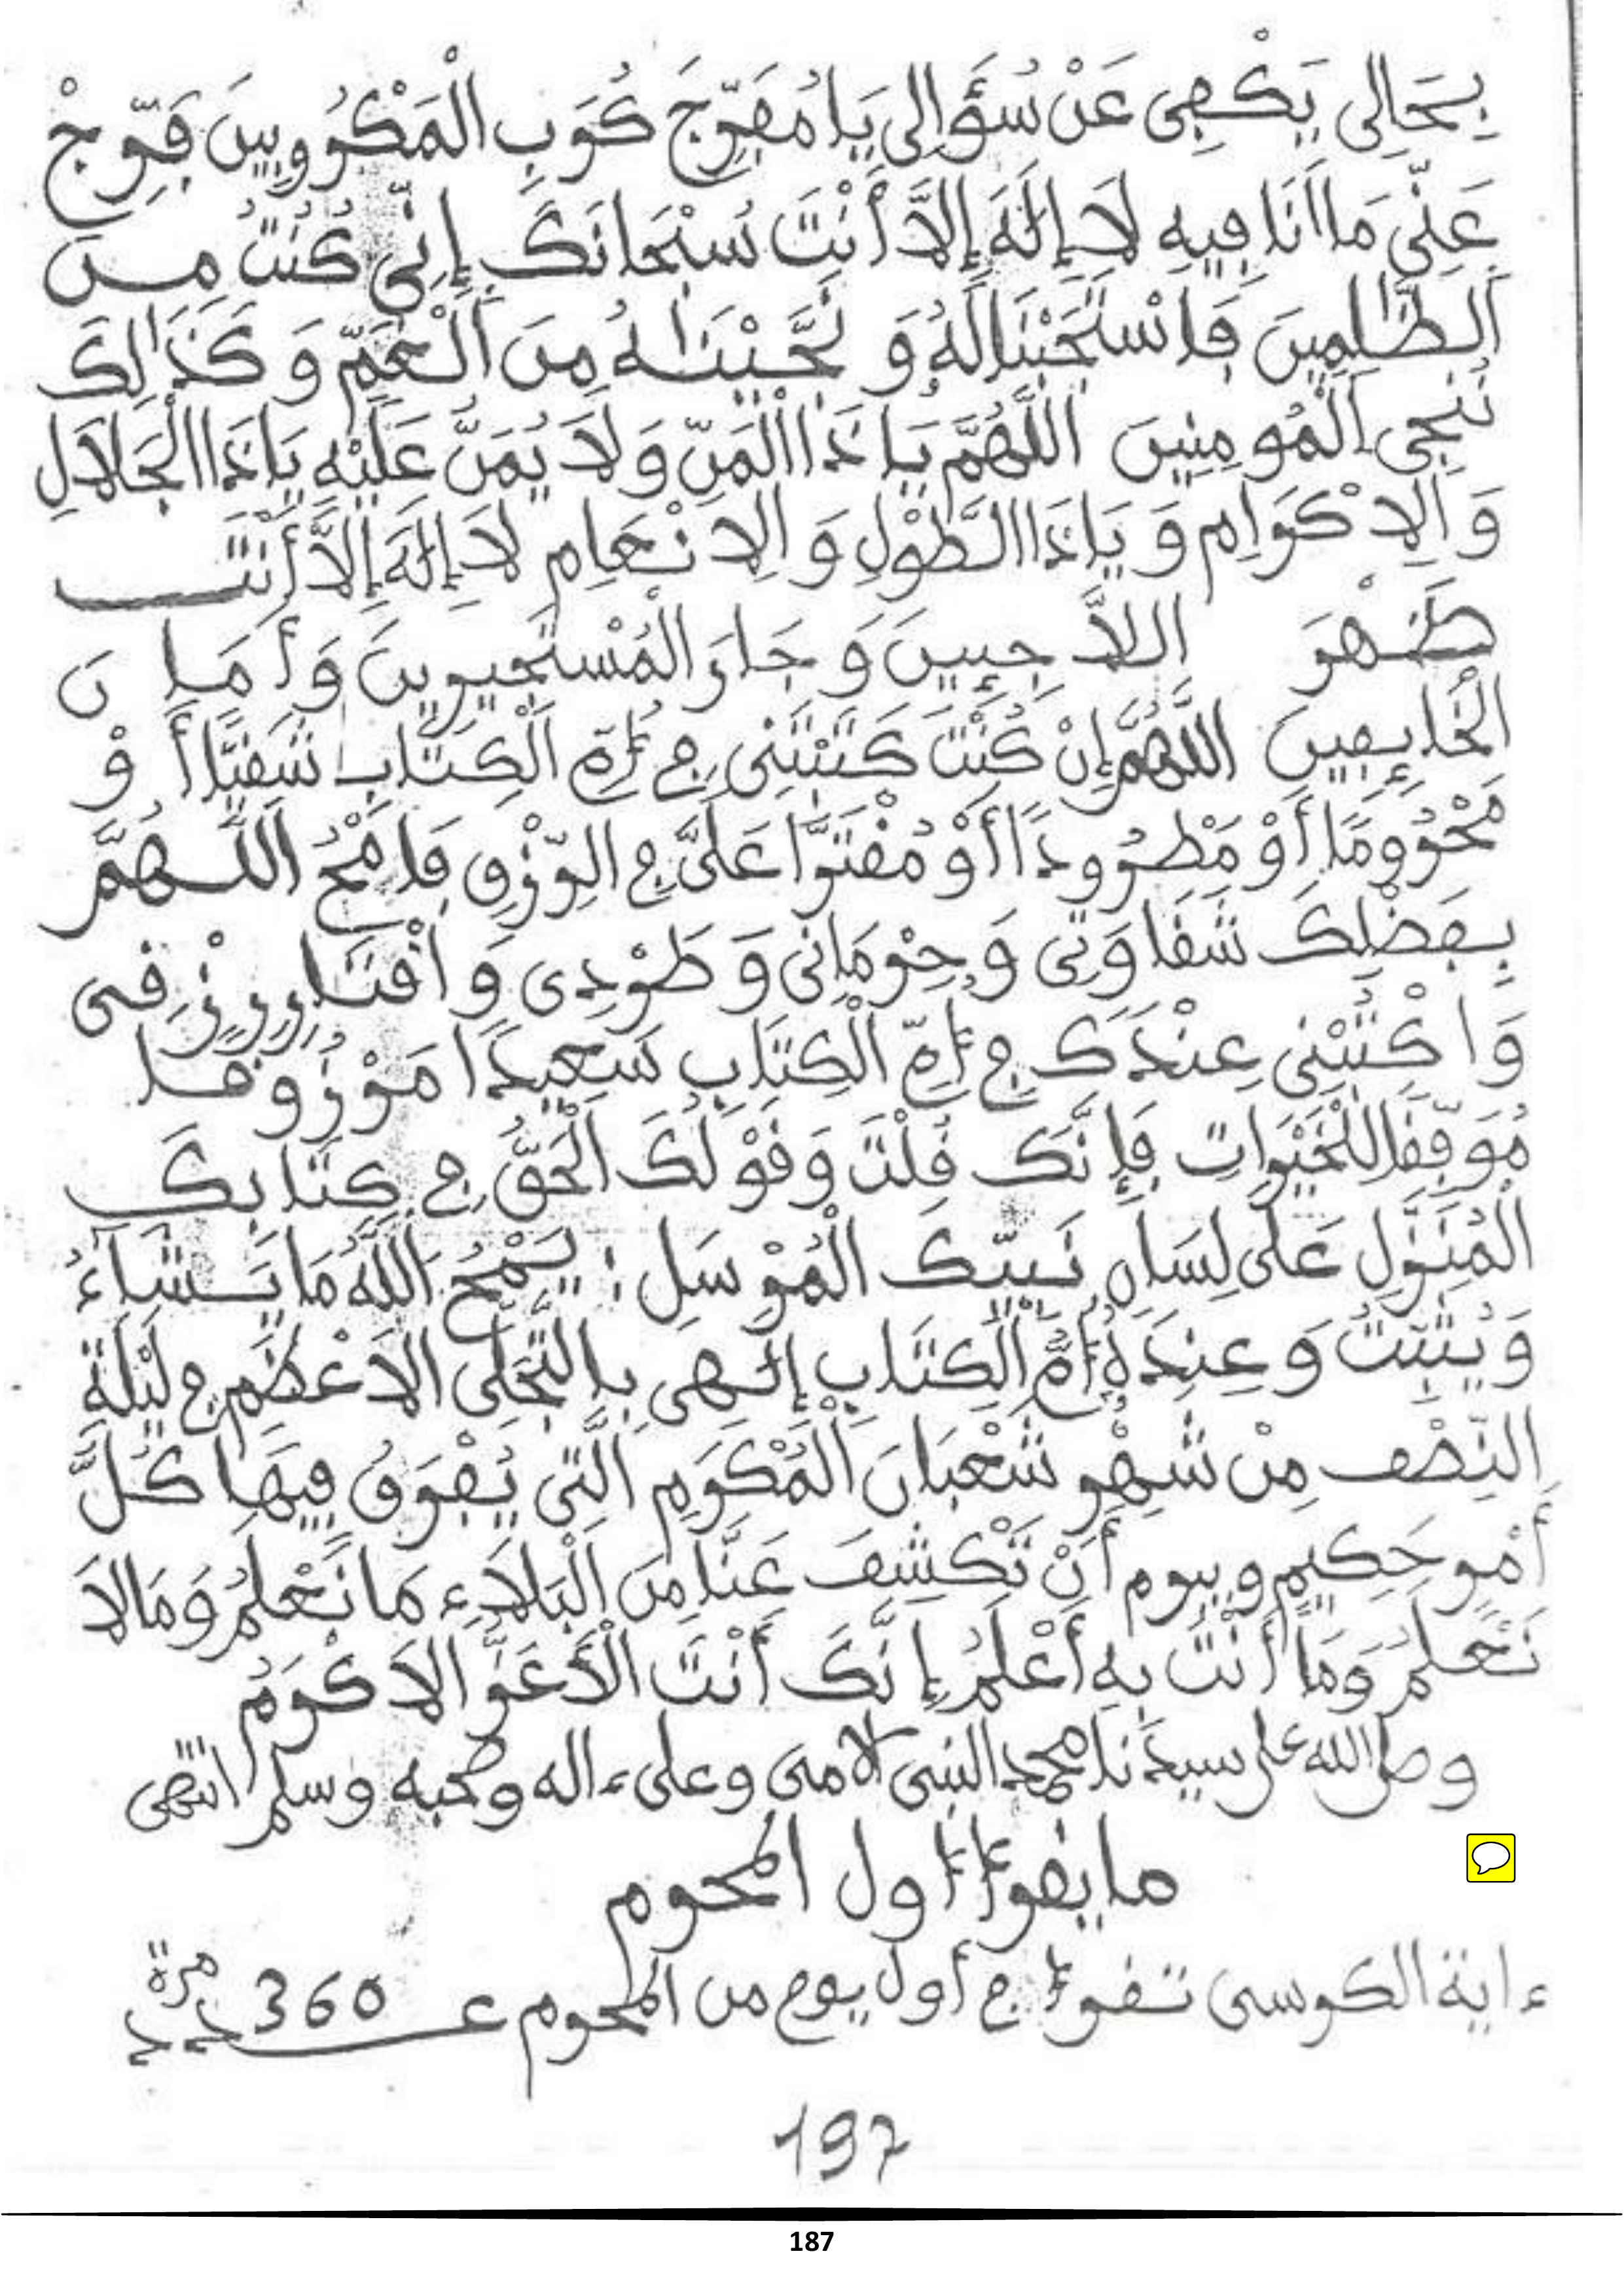 بِحَالِى يَكْفِى عَنْ سُؤَالِى يَا مُفَرِّجَ كُرَبِ الْمَكْرُوبِينَ فَرِّجْ
عَنِّى مَا أَنَا فِيهِ لَا إِلَٰهَ إِلَّا أَنْتَ سُبْحَانَكَ إِنِّى كُنْتُ مِنَ
الظَّٰلِمِينَ فَاسْتَجَبْنَا لَهُ وَ نَجَّيْنَٰهُ مِنَ الْغَمِّ وَ كَذَٰلِكَ
نُنْجِى الْمُومِنِينَ اللَّهُمَّ يَا ذَا الْمَنِّ وَ لَا يُمَنُّ عَلَيْهِ يَا ذَا الْجَلَالِ
وَ الْاِكْرَامِ وَ يَا ذَا الطَّوْلِ وَ الْاِنْعَامِ لَا إِلَٰهَ إِلَّا أَنْتَ
ظَهْرَ اللَّاجِئِينَ وَ جَارَ الْمُسْتَجِيرِينَ وَ أَمَانَ
الْخَائِفِينَ اللَّهُمَّ إِنْ كُنْتَ كَتَبْتَنِى فِى أُمِّ الْكِتَابِ شَقِيًّا أَوْ
مَحْرُومًا أَوْ مَطْرُودًا أَوْ مُقْتَرًّا عَلَىَّ فِى الرِّزْقِ فَامْحُ اللَّهُمَّ
بِفَضْلِكَ شَقَاوَتِى وَ حِرْمَانِى وَ طَرْدِى وَ اقْتَارَ رِزْقِى
وَ اكْتُبْنِى عِنْدَكَ فِى أُمِّ الْكِتَابِ سَعِيدًا مَرْزُوقًا
مُوَفَّقًا لِلْخَيْرَاتِ فَإِنَّكَ قُلْتَ وَ قَوْلُكَ الْحَقُّ فِى كِتَابِكَ
الْمُنَزَّلِ عَلَى لِسَانِ نَبِيِّكَ الْمُرْسَلِ : يَمْحُ اللَّهُ مَا يَشَاءُ
وَ يُثَبِّتُ وَ عِنْدَهُ أُمُّ الْكِتَابِ إِلَٰهِى بِالتَّجَلِّى الْاَعْظَمِ فِى لَيْلَةِ
النِّصْفِ مِنْ شَهْرِ شَعْبَانَ الْمُكَرَّمِ الَّتِى يُفْرَقُ فِيهَا كُلُّ
أَمْرٍ حَكِيمٍ وَيبرم أَنْ تَكْشِفَ عَنَّا مِنَ الْبَلَاءِ مَا نَعْلَمُ وَ مَا لَا
نَعْلَمُ وَ مَا أَنْتَ بِهِ أَعْلَمُ إِنَّكَ أَنْتَ الْأَعَزُّ الْاَكْرَمُ
وصلى الله على سيدنا محمد النبى الامى وعلى ءاله وصحبه وسلم انتهى
ما يقرأ أول المحرم
ءاية الكرسى تقرأ فى أول يوم من المحرم عدد 360 مرة
197
187